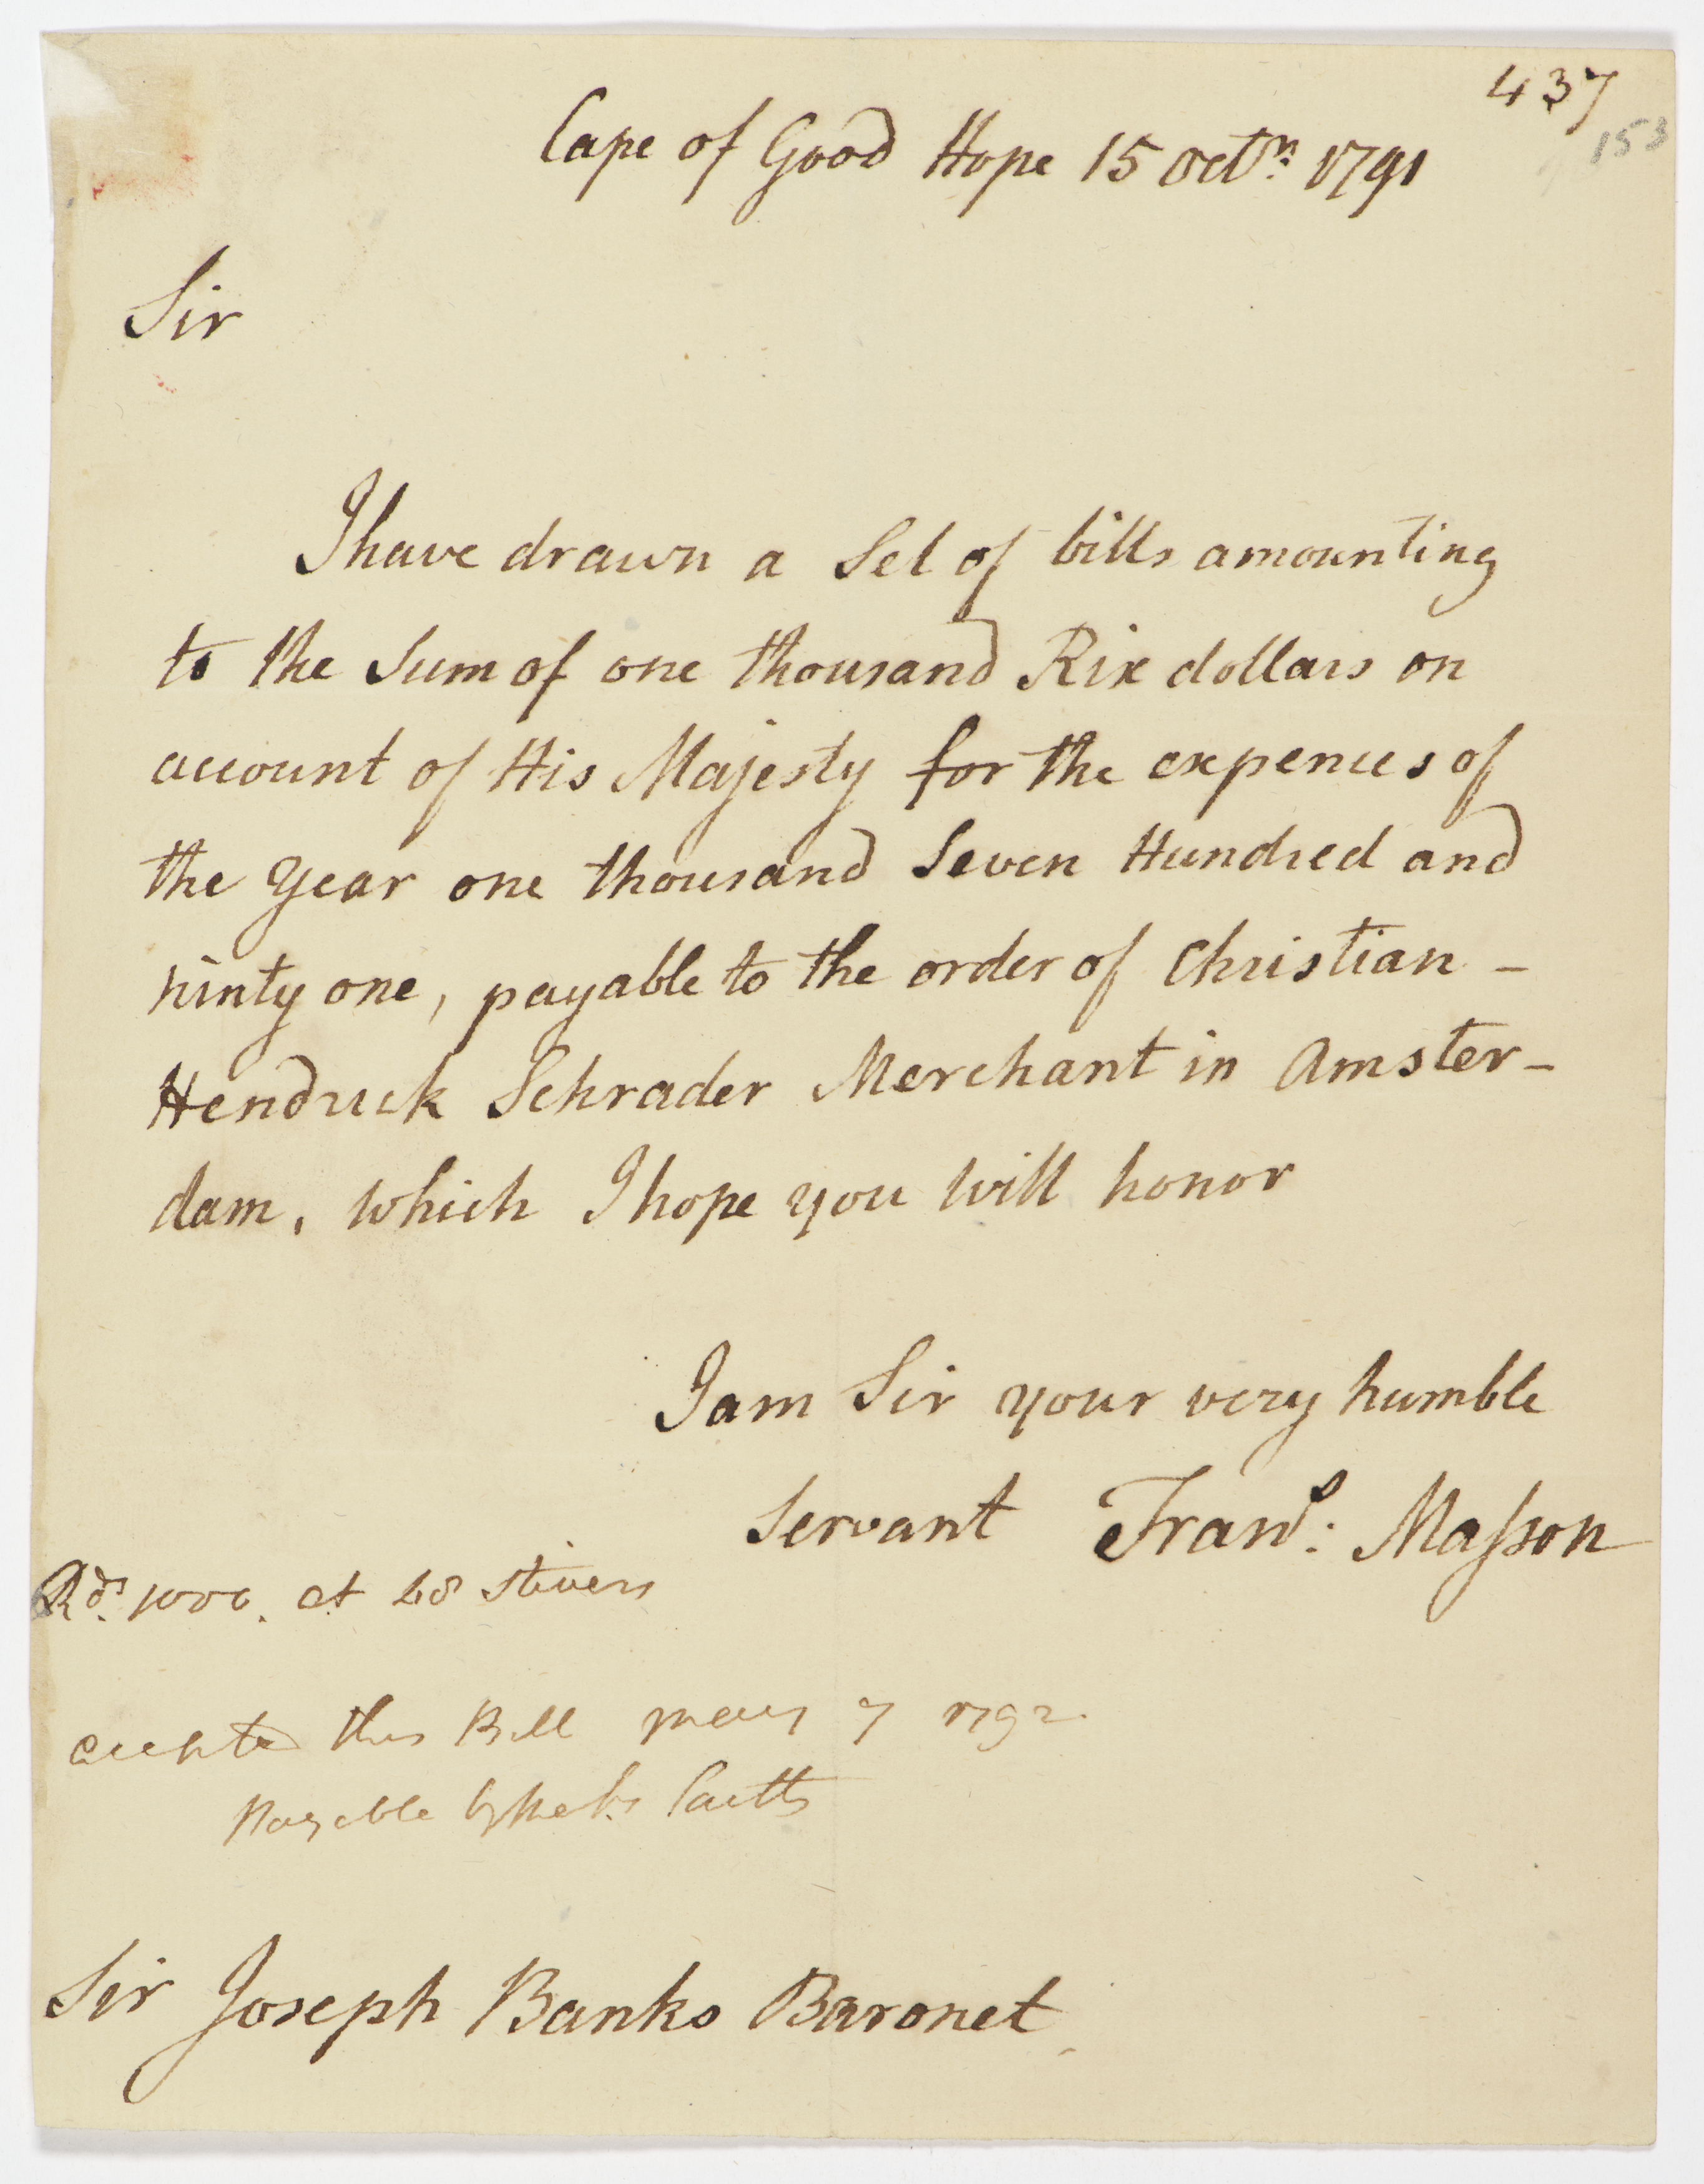 437
153
Cape of Good Hope 15 Octr. 1791
Sir
I have drawn a Set of bills amounting
to the Sum of one thousand Rix dollars on
account of His Majesty for the expences of
the Year one thousand Seven Hundred and
ninty one, payable to the order of Christian -
Hendrick Schrader Merchant in Amster-
dam, which I hope you will honor
I am Sir your very humble
Servant Frans: Masson
Rds. 1000. at 48 Stivers
accepted this Bill may 7 1792
Payable by Coutts
Sir Joseph Banks Baronet